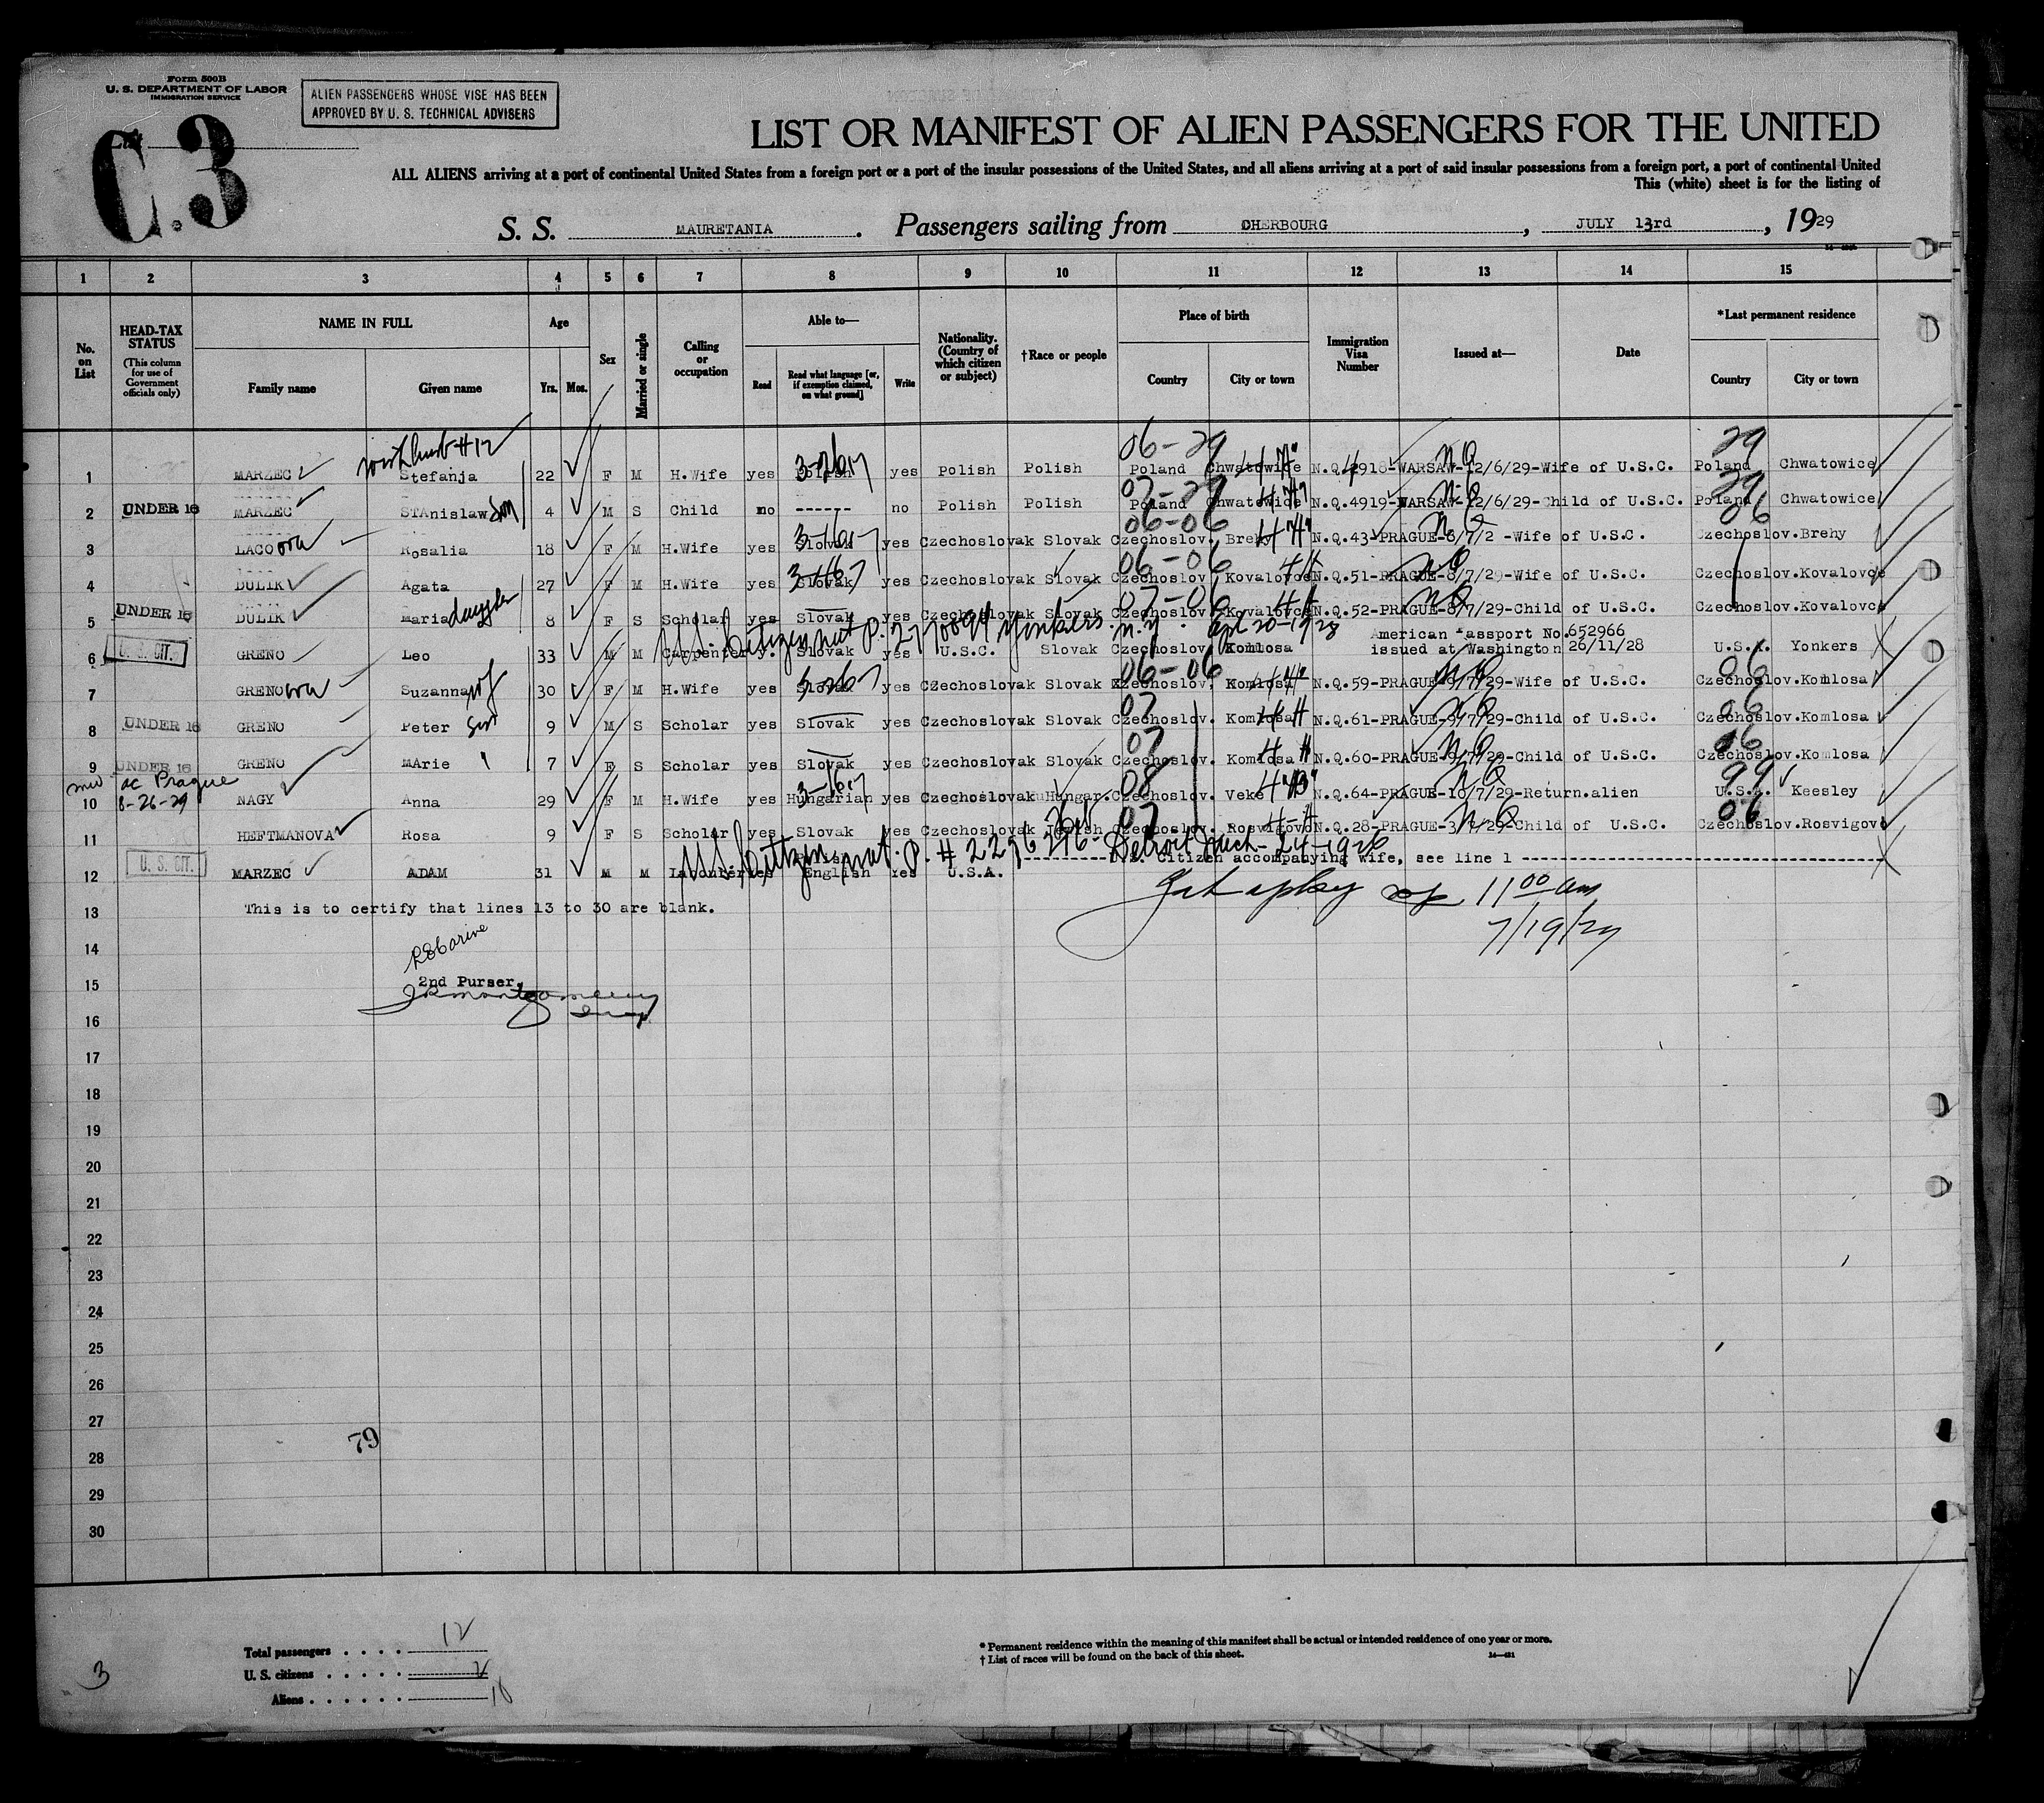 Form 500B
U. S. DEPARTMENT OF LABOR
IMMIGRATION SERVICE
ALIEN PASSENGERS WHOSE VISE HAS BEEN
APPROVED BY U. S. TECHNICAL ADVISERS
List
C.3
LIST OR MANIFEST OF ALIEN PASSENGERS FOR THE UNITED
ALL ALIENS arriving at a port of continental United States from a foreign port or a port of the insular possessions of the United States, and all aliens arriving at a port of said insular possessions from a foreign port, a port of continental United
This (white) sheet is for the listing of
S. S. MAURETANIA. Passengers sailing from CHERBOURG, JULY 13rd, 1929
1 2 3 4 5 6 7 8 9 10 11 12 13 14 15
No. on List
HEAD-TAX STATUS
(This column for use of Government officials only)
NAME IN FULL
Family name Given name
Age
Yrs. Mos.
Sex
Married or single
Calling or occupation
Able to—
Read
Read what language [or, if exemption claimed, on what ground]
Write
Nationality. (Country of which citizen or subject)
†Race or people
Place of birth
Country City or town
Immigration Visa Number
Issued at—
Date
*Last permanent residence
Country City or town
06-29 NQ 29
1 MARZEC Stefanja 22 F M H.Wife yes Polish yes Polish Polish Poland Chwatowice N.Q.4918-WARSAW-12/6/29-Wife of U.S.C. Poland Chwatowice
07-29 NQ 29
2 UNDER 16 MARZEC STAnislaw son 4 M S Child no ------ no Polish Polish Poland Chwatowice N.Q.4919-WARSAW-12/6/29-Child of U.S.C. Poland Chwatowice
06-06 NQ 06
3 LACO ova Rosalia 18 F M H.Wife yes Slovak yes Czechoslovak Slovak Czechoslov. N.Q.43-PRAGUE-8/7/2 -Wife of U.S.C. Czechoslov. Brehy
06-06 NQ
4 DULIK Agata 27 F M H.Wife yes Slovak yes Czechoslovak Slovak Czechoslov. Kovalovce N.Q.51-PRAGUE-8/7/29-Wife of U.S.C. Czechoslov. Kovalovce
07-06 NQ
5 UNDER 16 DULIK Maria daughter 8 F S Scholar yes Slovak yes Czechoslovak Slovak Czechoslov. Kovalovce N.Q.52-PRAGUE-8/7/29-Child of U.S.C. Czechoslov. Kovalovce
U.S. Citizen nat P. 2770894 Yonkers N.Y.
6 U.S. CIT. GRENO Leo 33 M M Carpenter y. Slovak yes U.S.C. Slovak Czechoslov. Komlosa American Passport No.652966 issued at Washington 26/11/28 U.S.A. Yonkers
06-06 NQ 06
7 GRENO ova Suzanna wf 30 F M H.Wife yes Slovak yes Czechoslovak Slovak Czechoslov. Komlosa N.Q.59-PRAGUE-9/7/29-Wife of U.S.C. Czechoslov. Komlosa
07 NQ 06
8 UNDER 16 GRENO Peter son 9 M S Scholar yes Slovak yes Czechoslovak Slovak Czechoslov. Komlosa N.Q.61-PRAGUE-9/7/29-Child of U.S.C. Czechoslov. Komlosa
07 NQ 06
9 UNDER 16 GRENO MArie 7 F S Scholar yes Slovak yes Czechoslovak Slovak Czechoslov. Komlosa N.Q.60-PRAGUE-9/7/29-Child of U.S.C. Czechoslov. Komlosa
ac Prague
8-26-29
08 NQ 99
10 NAGY Anna 29 F M H.Wife yes Hungarian yes Czechoslovak Hungar. Czechoslov. Veke N.Q.64-PRAGUE-10/7/29-Return.alien U.S.A. Keesley
07 NQ 06
11 HEFTMANOVA Rosa 9 F S Scholar yes Slovak yes Czechoslovak Jewish Czechoslov. Rosvigovo N.Q.28-PRAGUE-3/7/29-Child of U.S.C. Czechoslov. Rosvigovo
U.S. Citizen nat. P. # 2296276- Detroit Mich- 24-1926
12 U. S. CIT. MARZEC ADAM 31 M M Labourer yes English Yes U.S.A. ---------- U.S. Citizen accompanying wife, see line 1 ----------
11 00 am
7/19/29
13 This is to certify that lines 13 to 30 are blank.
14
2nd Purser.
15
JR Montgomery
Insp
16
17
18
19
20
21
22
23
24
25
26
27
79
28
29
30
Total passengers . . . . 12
U. S. citizens . . . . . 2
Aliens . . . . . . 10
3
* Permanent residence within the meaning of this manifest shall be actual or intended residence of one year or more.
† List of races will be found on the back of this sheet.
14—421